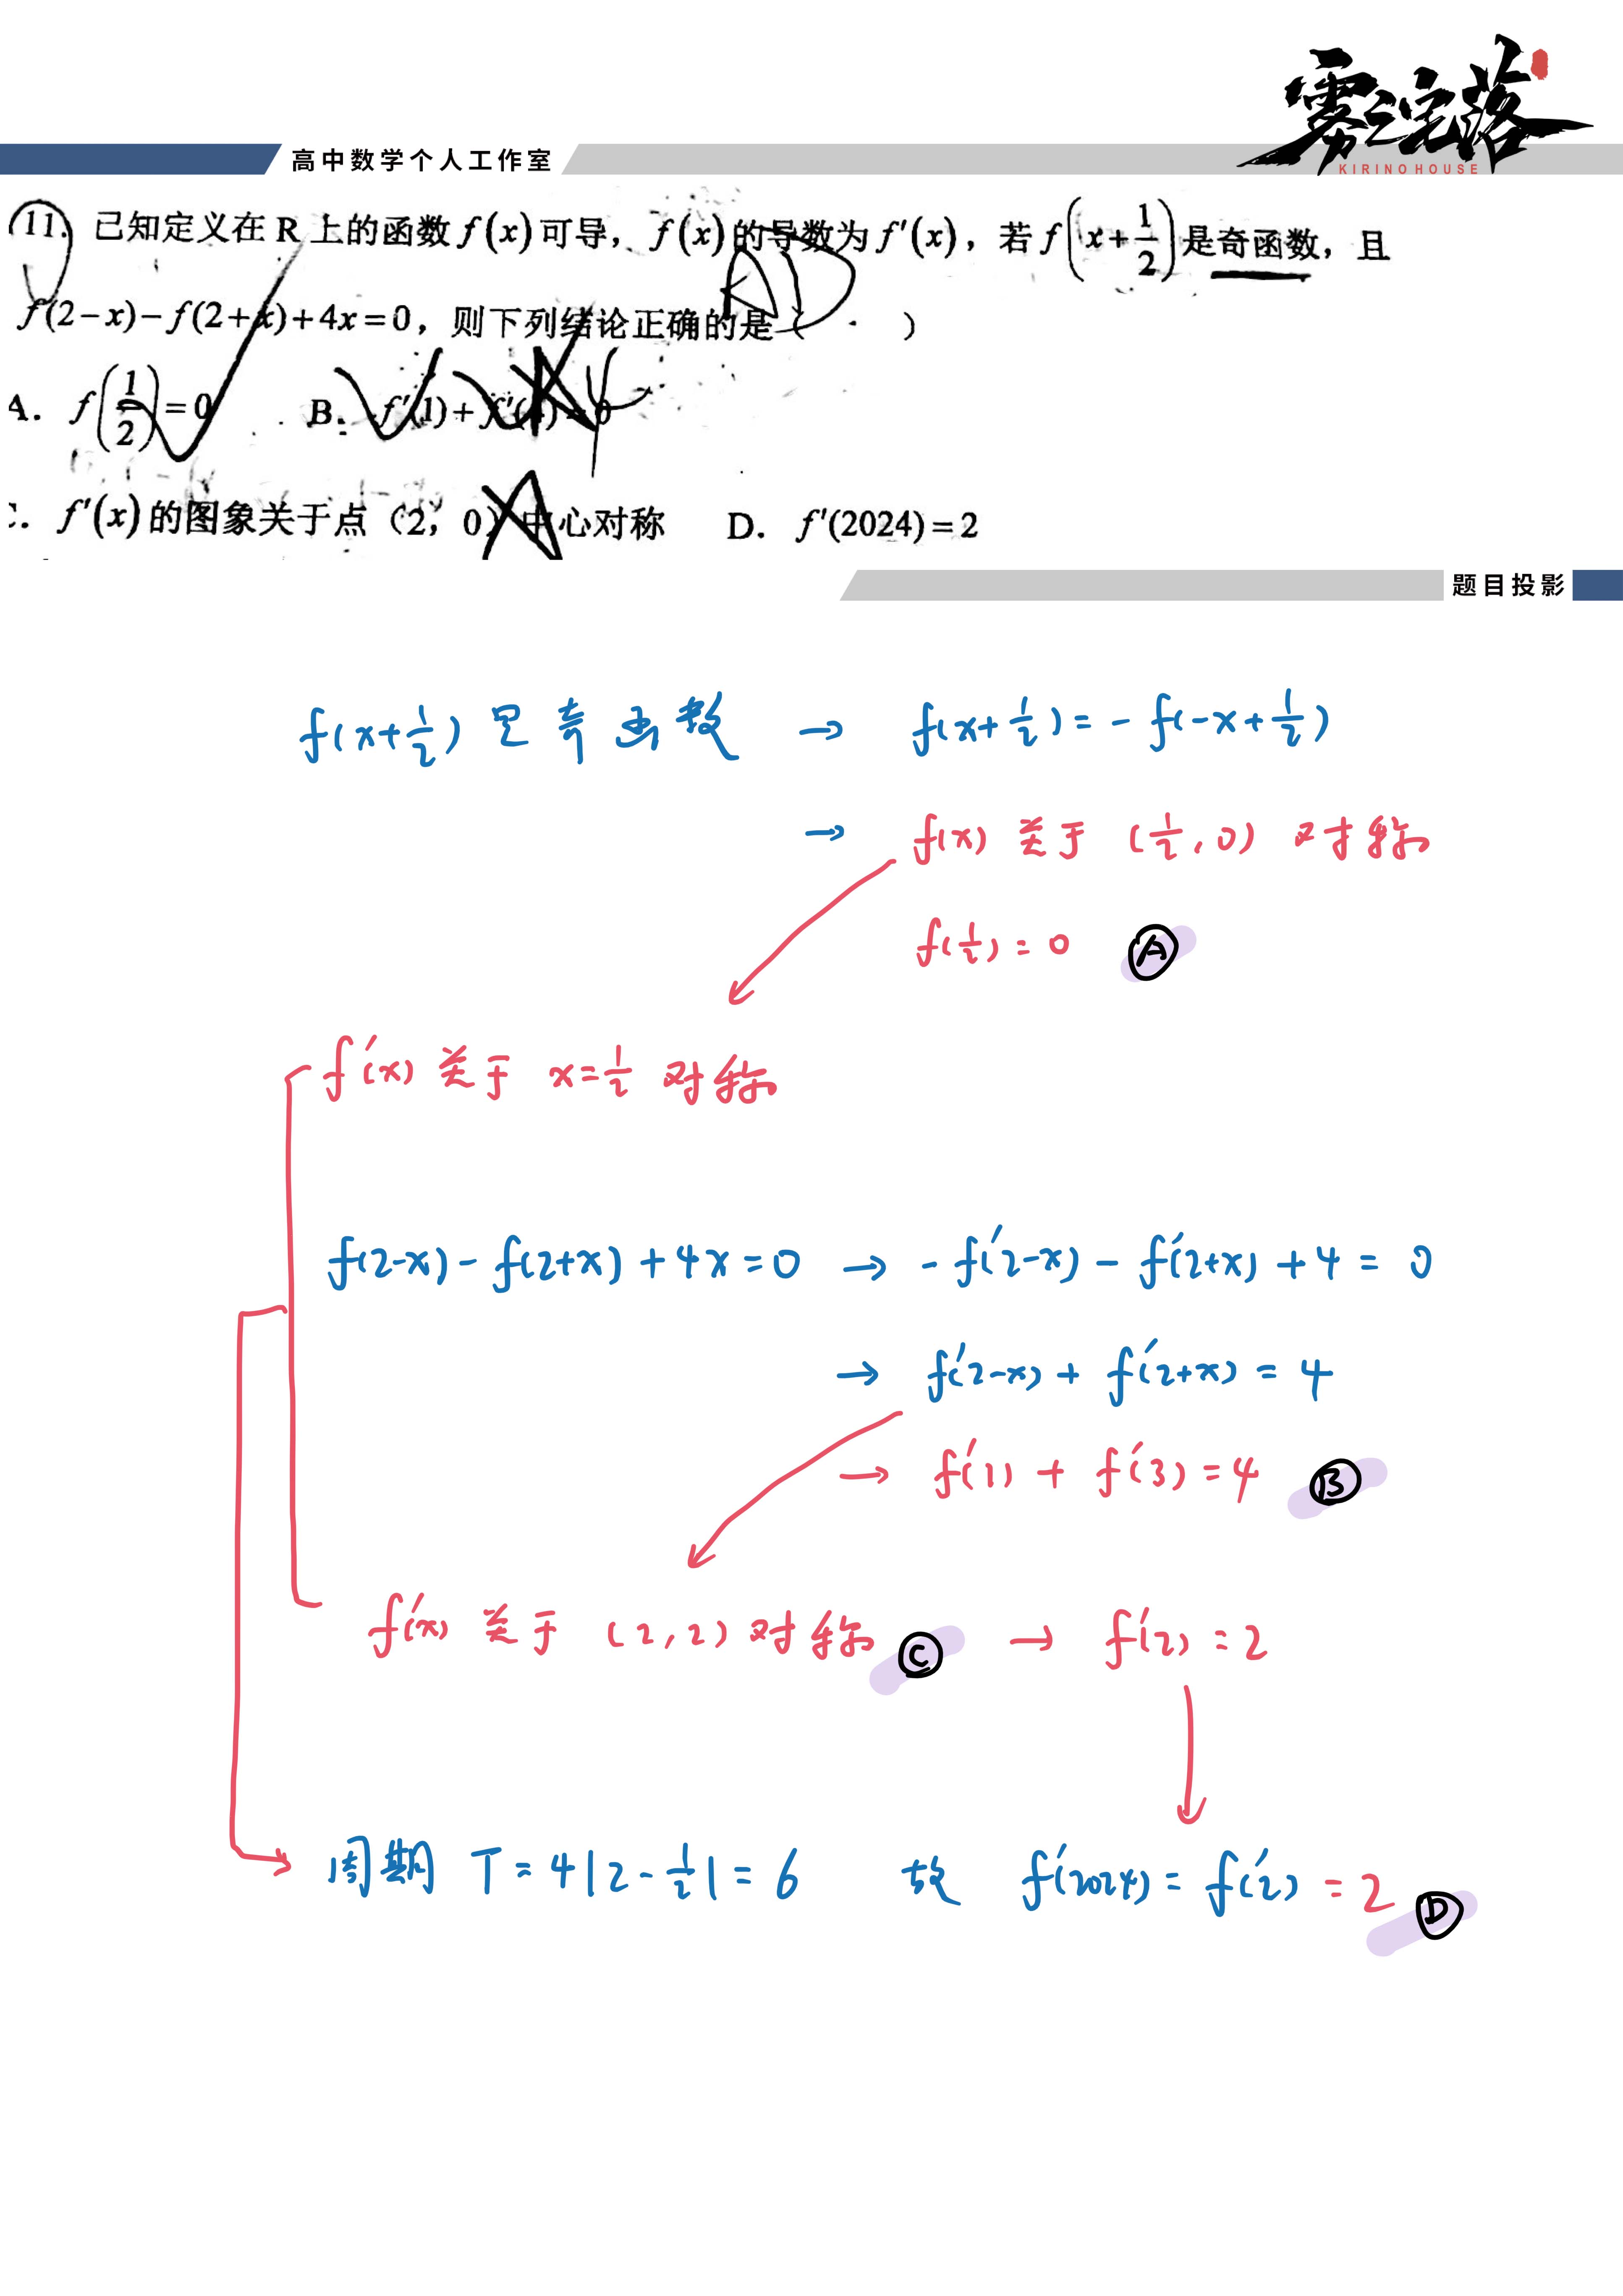 雾之宅落
KIRINO HOUSE
高中数学个人工作室
11. 已知定义在 R 上的函数 f(x) 可导, f(x) 的导数为 f'(x), 若 f(x+1/2) 是奇函数, 且
f(2-x)-f(2+x)+4x=0, 则下列结论正确的是 ( )
AD
A. f(1/2)=0 B. f'(1)+f'( )=0
C. f'(x) 的图象关于点 (2, 0) 中心对称 D. f'(2024)=2
题目投影
f(x+1/2) 是奇函数 → f(x+1/2) = -f(-x+1/2)
→ f(x) 关于 (1/2, 0) 对称
f(1/2) = 0 Ⓐ
f'(x) 关于 x=1/2 对称
f(2-x) - f(2+x) + 4x = 0 → -f'(2-x) - f'(2+x) + 4 = 0
→ f'(2-x) + f'(2+x) = 4
→ f'(1) + f'(3) = 4 Ⓑ
f'(x) 关于 (2, 2) 对称 Ⓒ → f'(2) = 2
周期 T = 4|2-1/2| = 6 故 f'(2024) = f'(2) = 2 Ⓓ